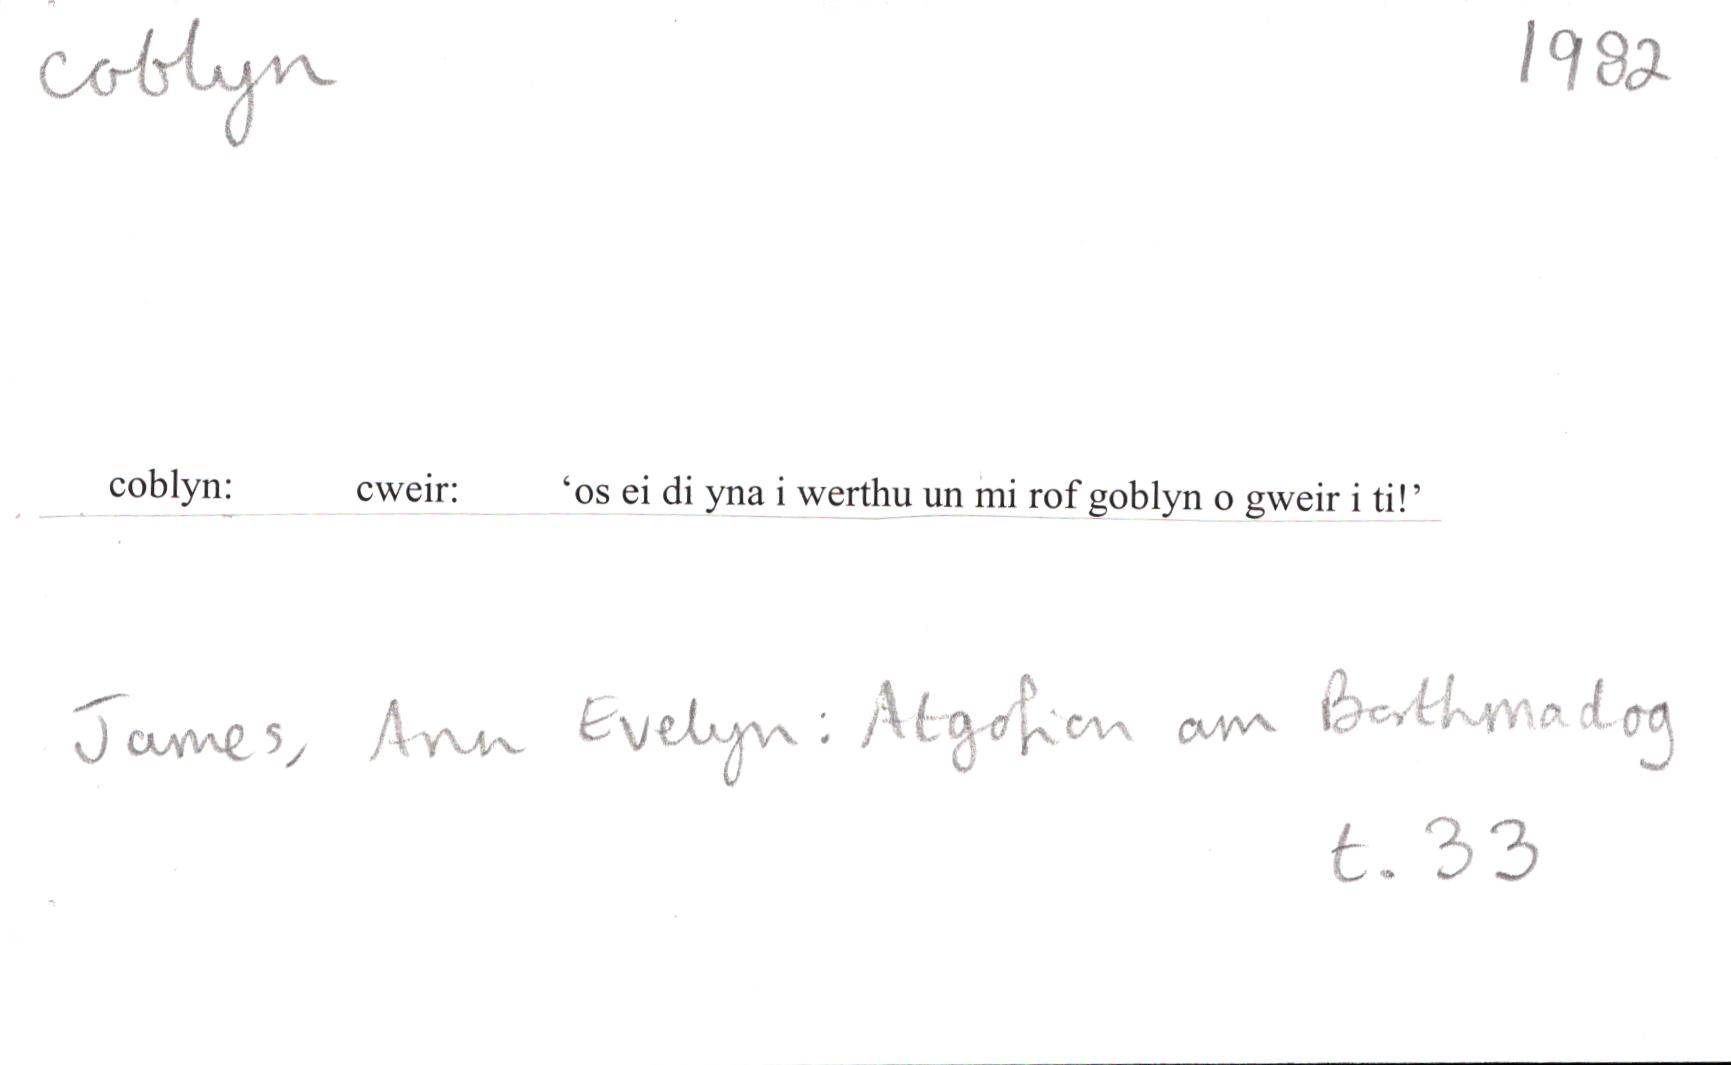 coblyn 1982
coblyn: cweir: ‘os ei di yna i werthu un mi rof goblyn o gweir i ti!’
James, Ann Evelyn: Atgofion am Borthmadog
t. 33